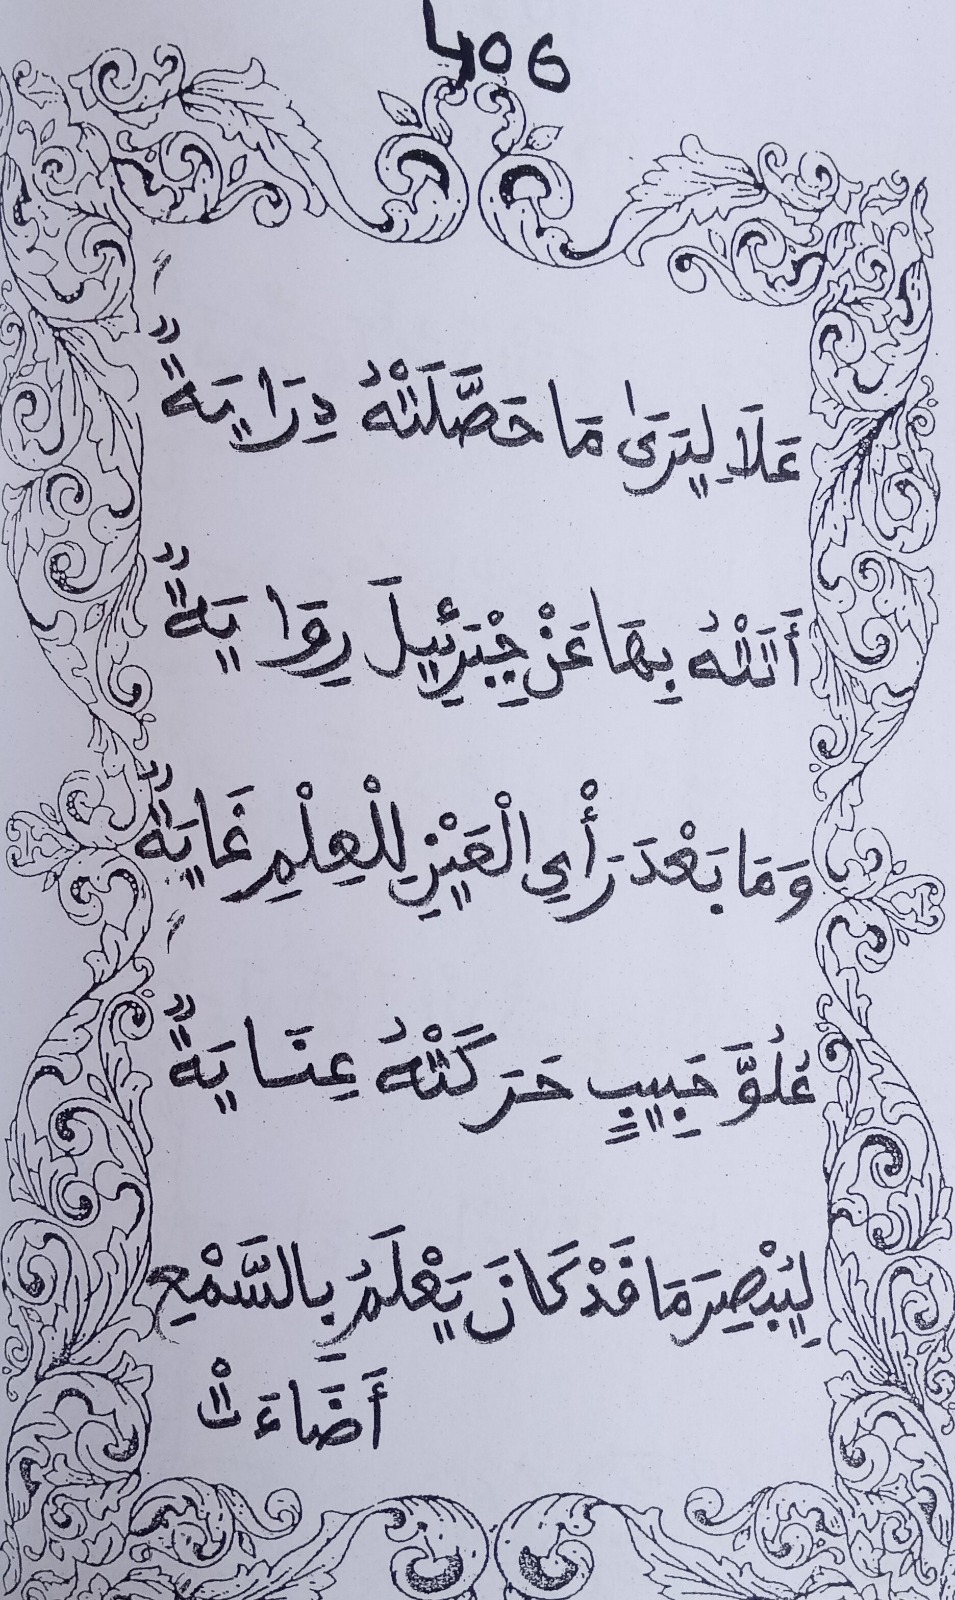 406
عَلَا لِيَرَىٰ مَا حَصَّلَتْهُ دِرَايَةً
أَتَتْهُ بِهَا عَنْ جِبْرَئِيلَ رِوَايَةً
وَمَا بَعْدَ رَأْيِ الْعَيْنِ لِلْعِلْمِ غَايَةً
عُلُوَّ حَبِيبٍ حَرَكَتْهُ عِنَايَةً
لِيُبْصِرَ مَا قَدْ كَانَ يَعْلَمُ بِالسَّمْعِ
أَضَاءَتْ